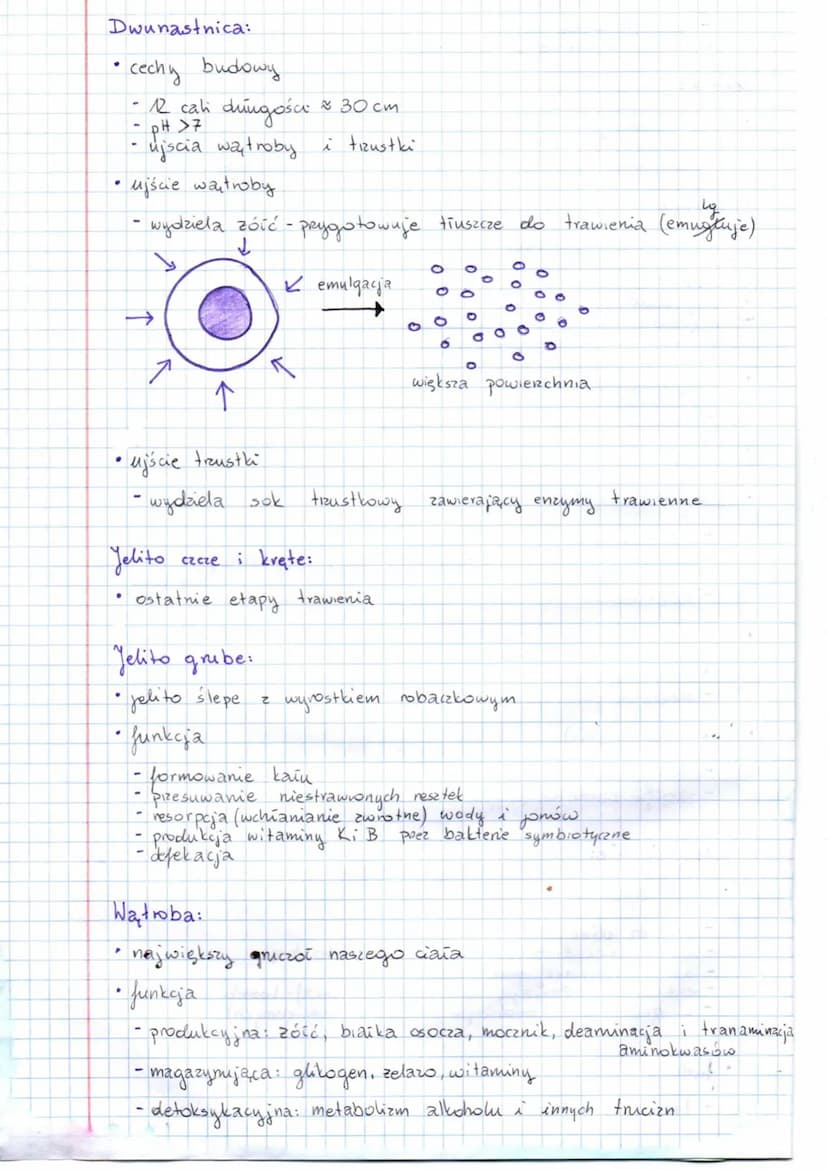 Dwunastnica:
• cechy budowy
- 12 cali długości ≈ 30 cm
- pH >7
- ujścia wątroby i trzustki
• ujście wątroby
- wydziela żółć - przygotowuje tłuszcze do trawienia (emugłuje)
lg
emulgacja
większa powierzchnia
• ujście trzustki
- wydziela sok trzustkowy zawierający enzymy trawienne
Jelito czcze i kręte:
• ostatnie etapy trawienia
Jelito grube:
• jelito ślepe z wyrostkiem robaczkowym
• funkcja
- formowanie kału
- przesuwanie niestrawionych resztek
- resorpcja (wchłanianie zwrotne) wody i jonów
- produkcja witaminy K i B przez bakterie symbiotyczne
- defekacja
Wątroba:
• największy gruczoł naszego ciała
• funkcja
- produkcyjna: żółć, białka osocza, mocznik, deaminacja i tranaminacja
aminokwasów
- magazynująca: glikogen, żelazo, witaminy
- detoksykacyjna: metabolizm alkoholu i innych trucizn